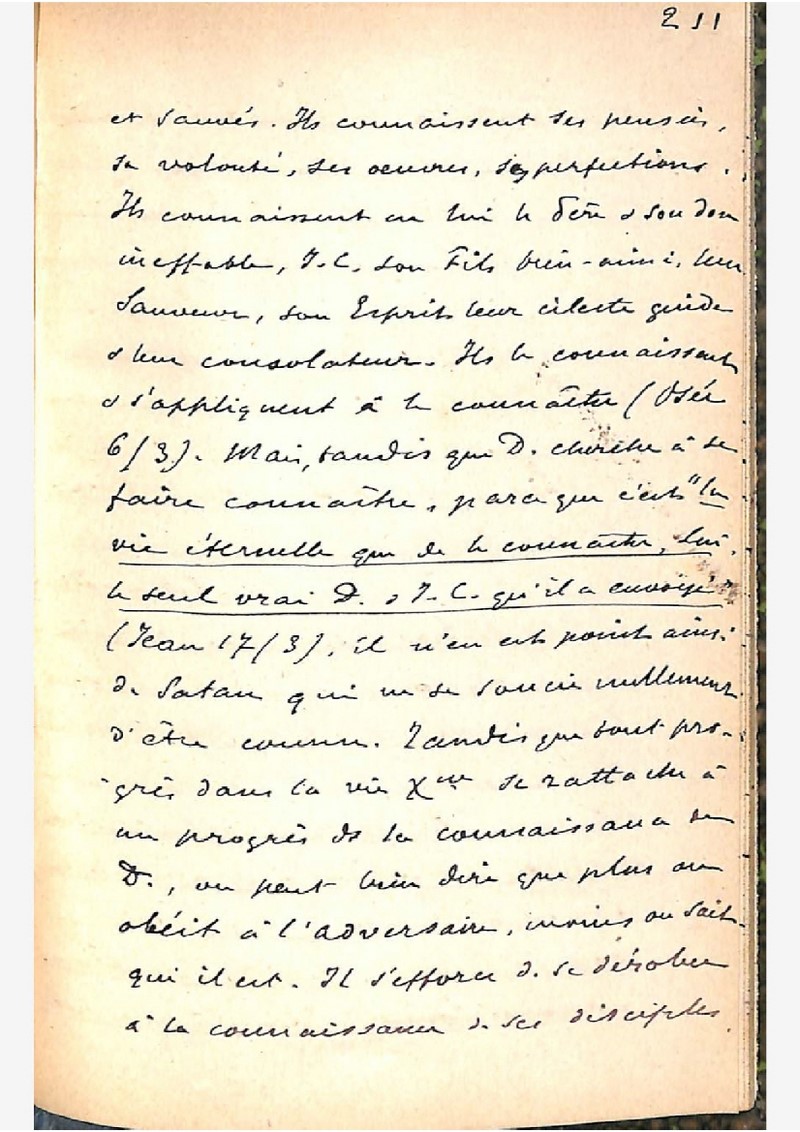 211
et sauvés. Ils connaissent ses pensées,
sa volonté, ses oeuvres, ses perfections.
Ils connaissent en lui le Père & son don
ineffable, J.C. son Fils bien-aimé, leur
Sauveur, son Esprit leur céleste guide
& leur consolateur. Ils le connaissent
& s'appliquent à le connaître (Osée
6/3). Mais, tandis que D. cherche à se
faire connaître, parce que c'est "la
vie éternelle que de le connaître, lui,
le seul vrai D. & J.C. qu'il a envoyé"
(Jean 17/3), il n'en est point ainsi
de Satan qui ne se soucie nullement
d'être connu. Tandis que tout pro-
grès dans la vie Xnne se rattache à
un progrès ds la connaissance de
D., on peut bien dire que plus on
obéit à l'adversaire, moins on sait
qui il est. Il s'efforce de se dérober
à la connaissance de ses disciples